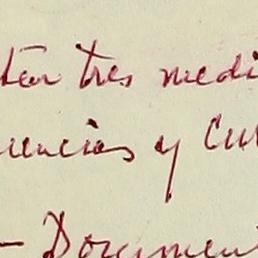 tar tres medi
uencias y Cu
— Documen